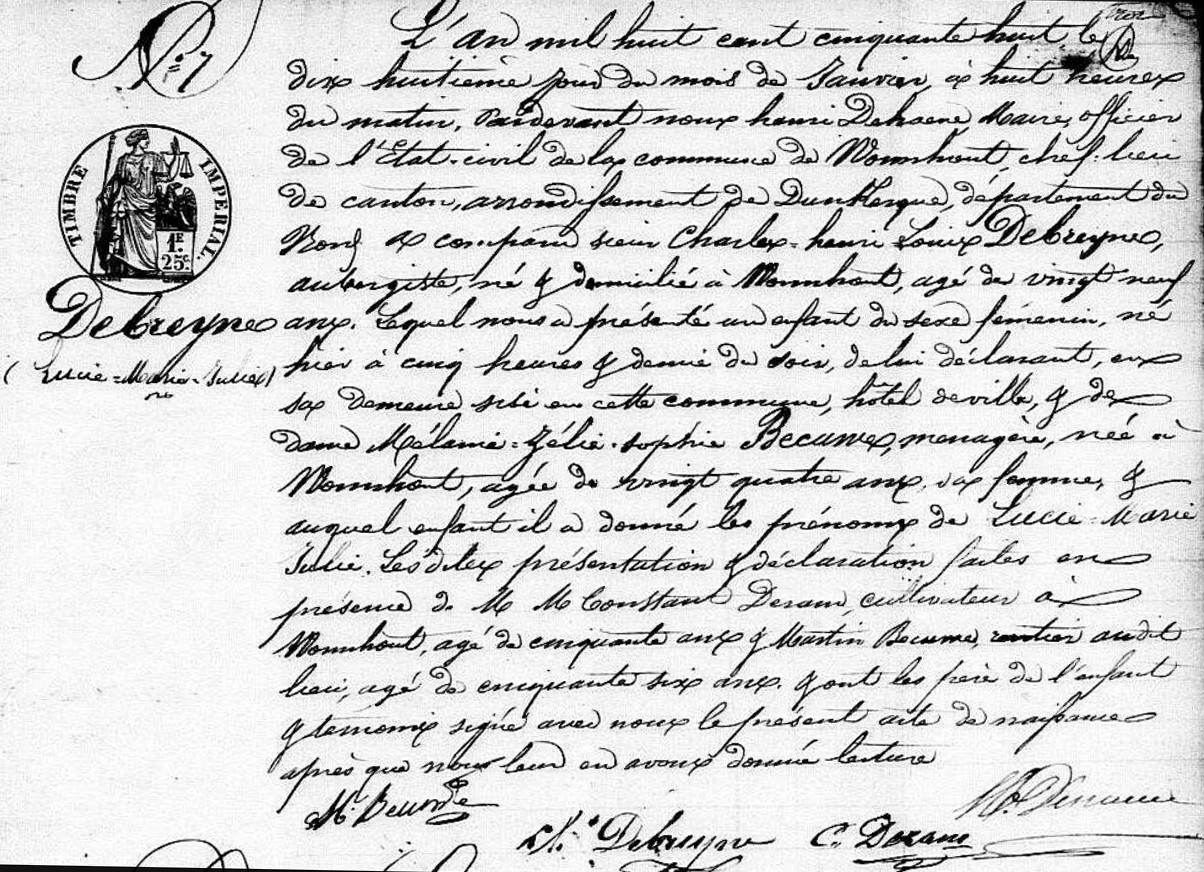 N° 7
L'an mil huit cent cinquante huit le
dix huitième jour du mois de Janvier, à huit heures
du matin, Pardevant nous henri Dehaene, Maire, officier
de l'Etat-civil de la commune de Wormhout, chef-lieu
de canton, arrondissement de Dunkerque, département du
Nord, a comparu sieur Charles-henri Louis Debreyne,
aubergiste, né & domicilié à Wormhout, agé de vingt neuf
ans. Lequel nous a présenté un enfant du sexe féminin, né
hier à cinq heures & demie du soir, de lui déclarant, en
sa demeure sise en cette commune, hôtel de ville, & de
dame Mélanie-Zélie-Sophie Becuwe, menagère, née à
Wormhout, agée de vingt quatre ans, sa femme, &
auquel enfant il a donné les prénoms de Lucie-Marie
Julie. Les dites présentation & déclaration faites en
présence de M M Constant Deram, cultivateur à
Wormhout, agé de cinquante ans & Martin Becuwe, rentier audit
lieu, agé de cinquante six ans. & ont les père de l'enfant
& temoins signé avec nous le présent acte de naissance
après que nous leur en avons donné lecture
TIMBRE IMPERIAL.
1F. 25c.
Debreyne
(Lucie-Marie-Julie)
M. Becuwe
Ch. Debreyne C. Deram